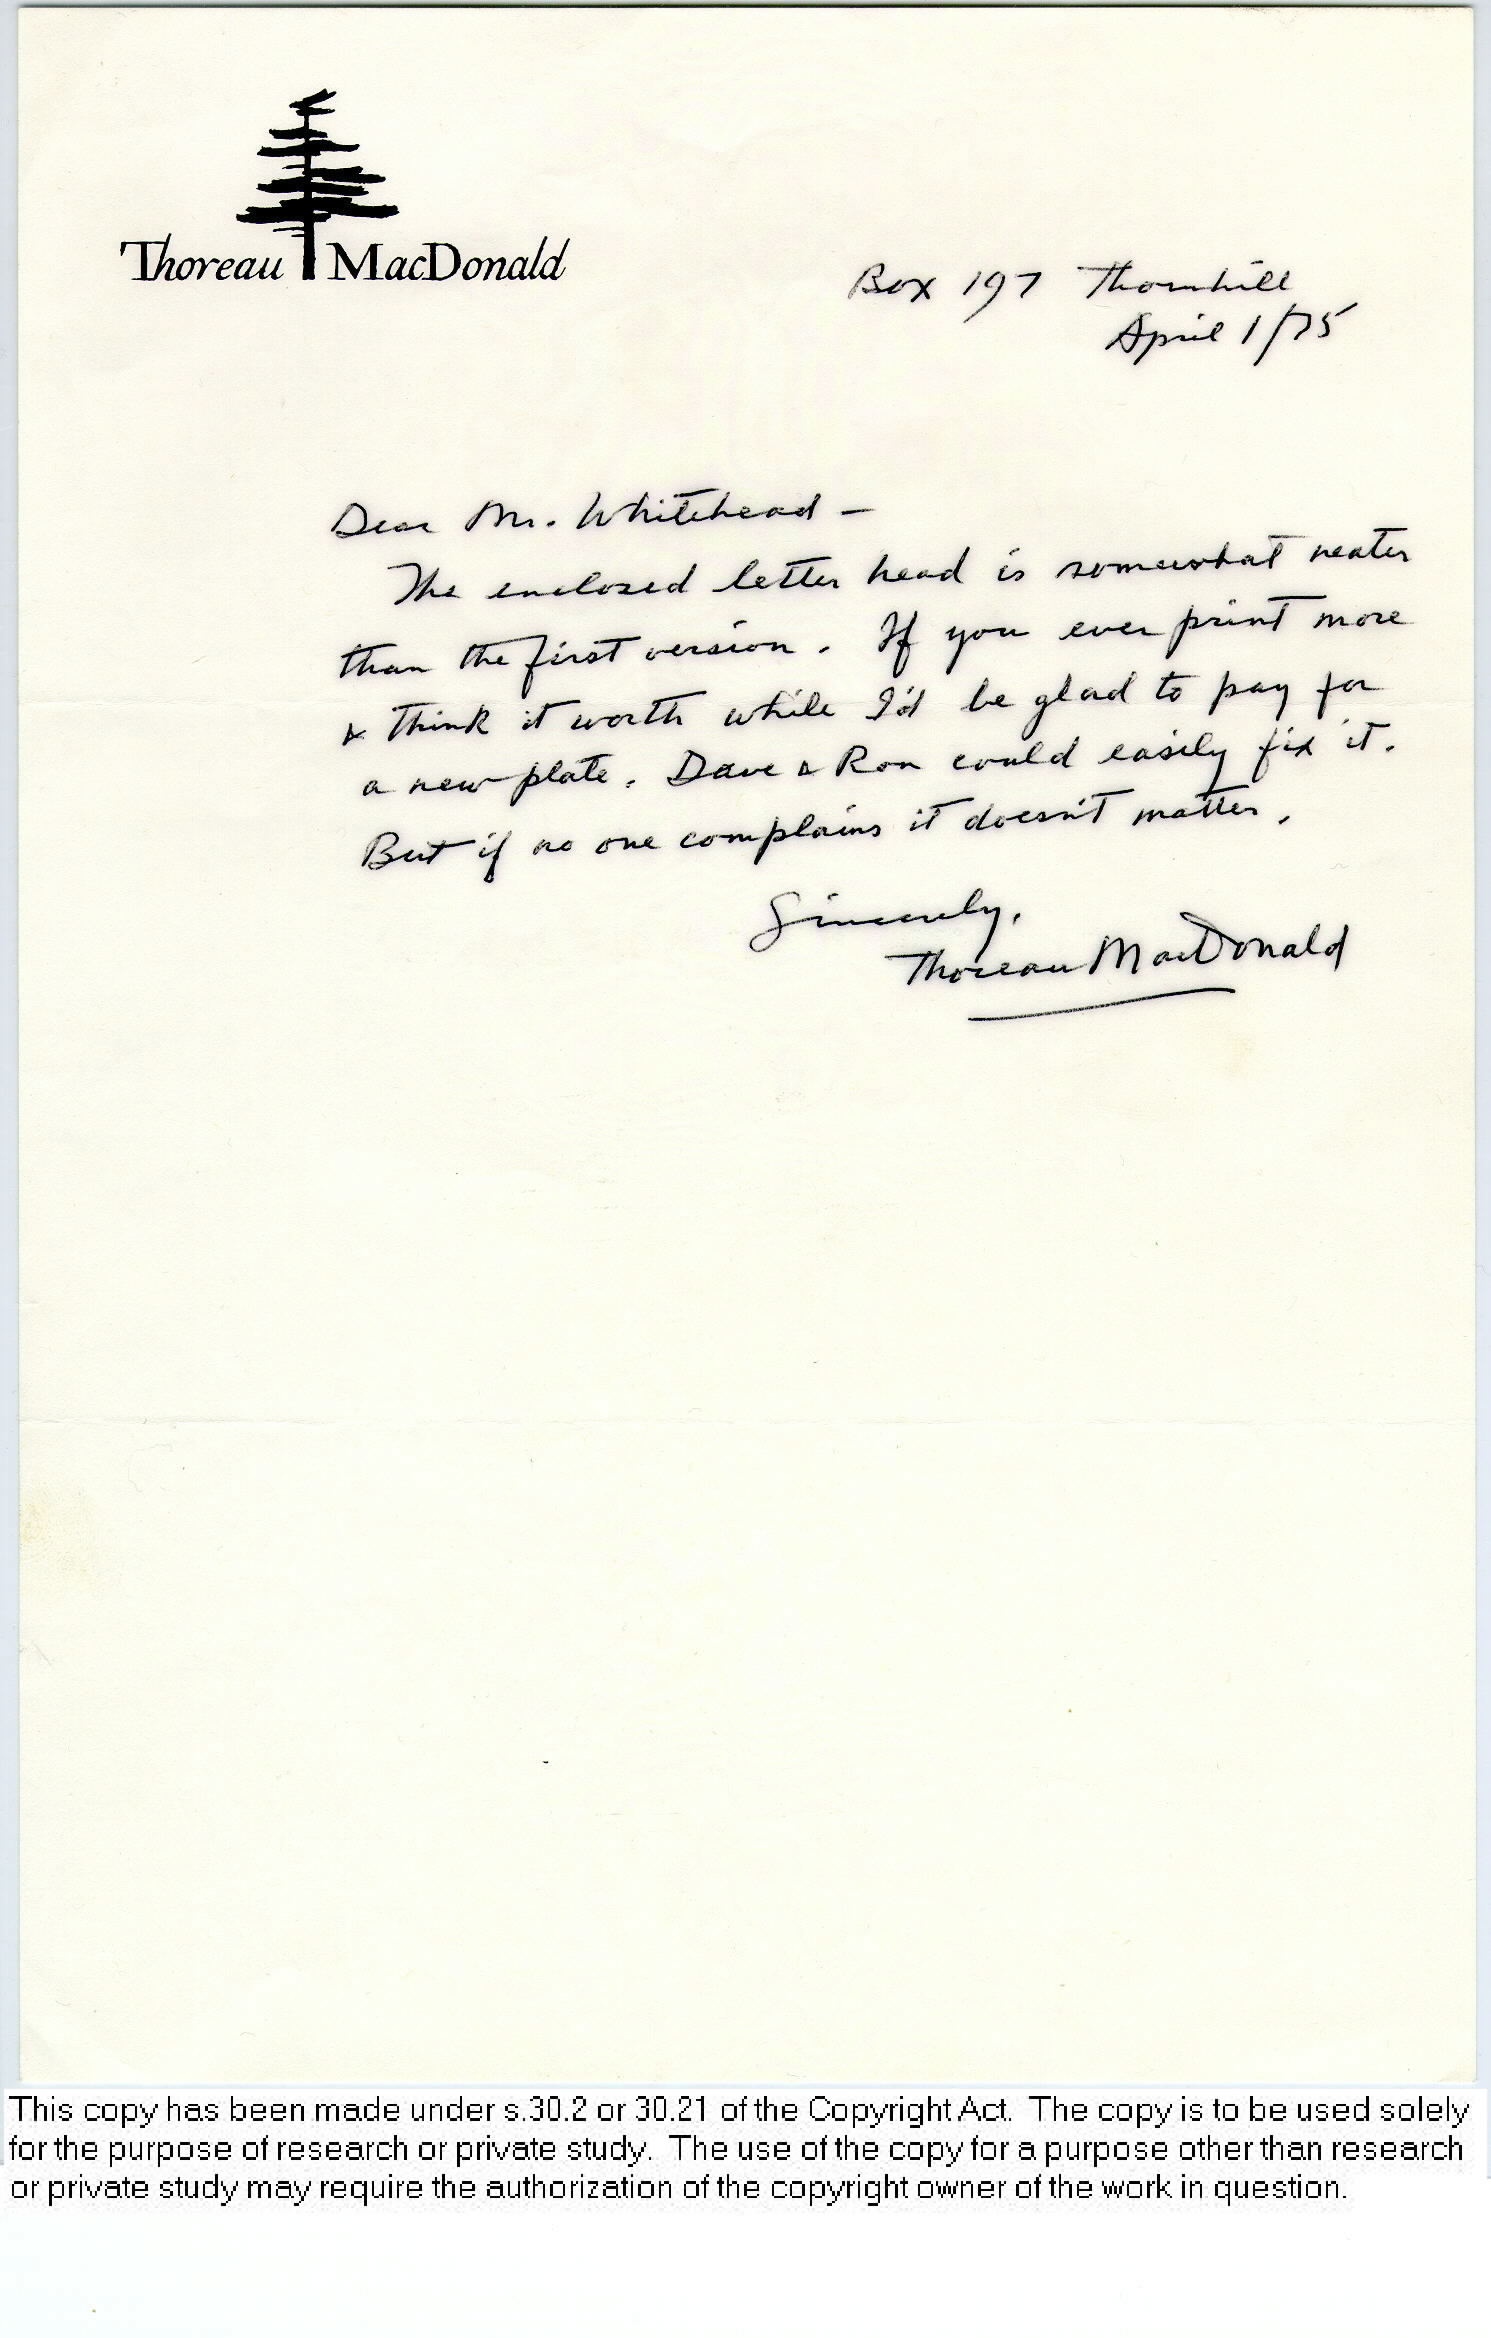 Thoreau MacDonald
Box 197 Thornhill
April 1/75
Dear Mr. Whitehead –
The enclosed letter head is somewhat neater
than the first version. If you ever print more
& think it worth while I'd be glad to pay for
a new plate. Dave & Ron could easily fix it.
But if no one complains it doesn't matter.
Sincerely,
Thoreau MacDonald
This copy has been made under s.30.2 or 30.21 of the Copyright Act. The copy is to be used solely
for the purpose of research or private study. The use of the copy for a purpose other than research
or private study may require the authorization of the copyright owner of the work in question.